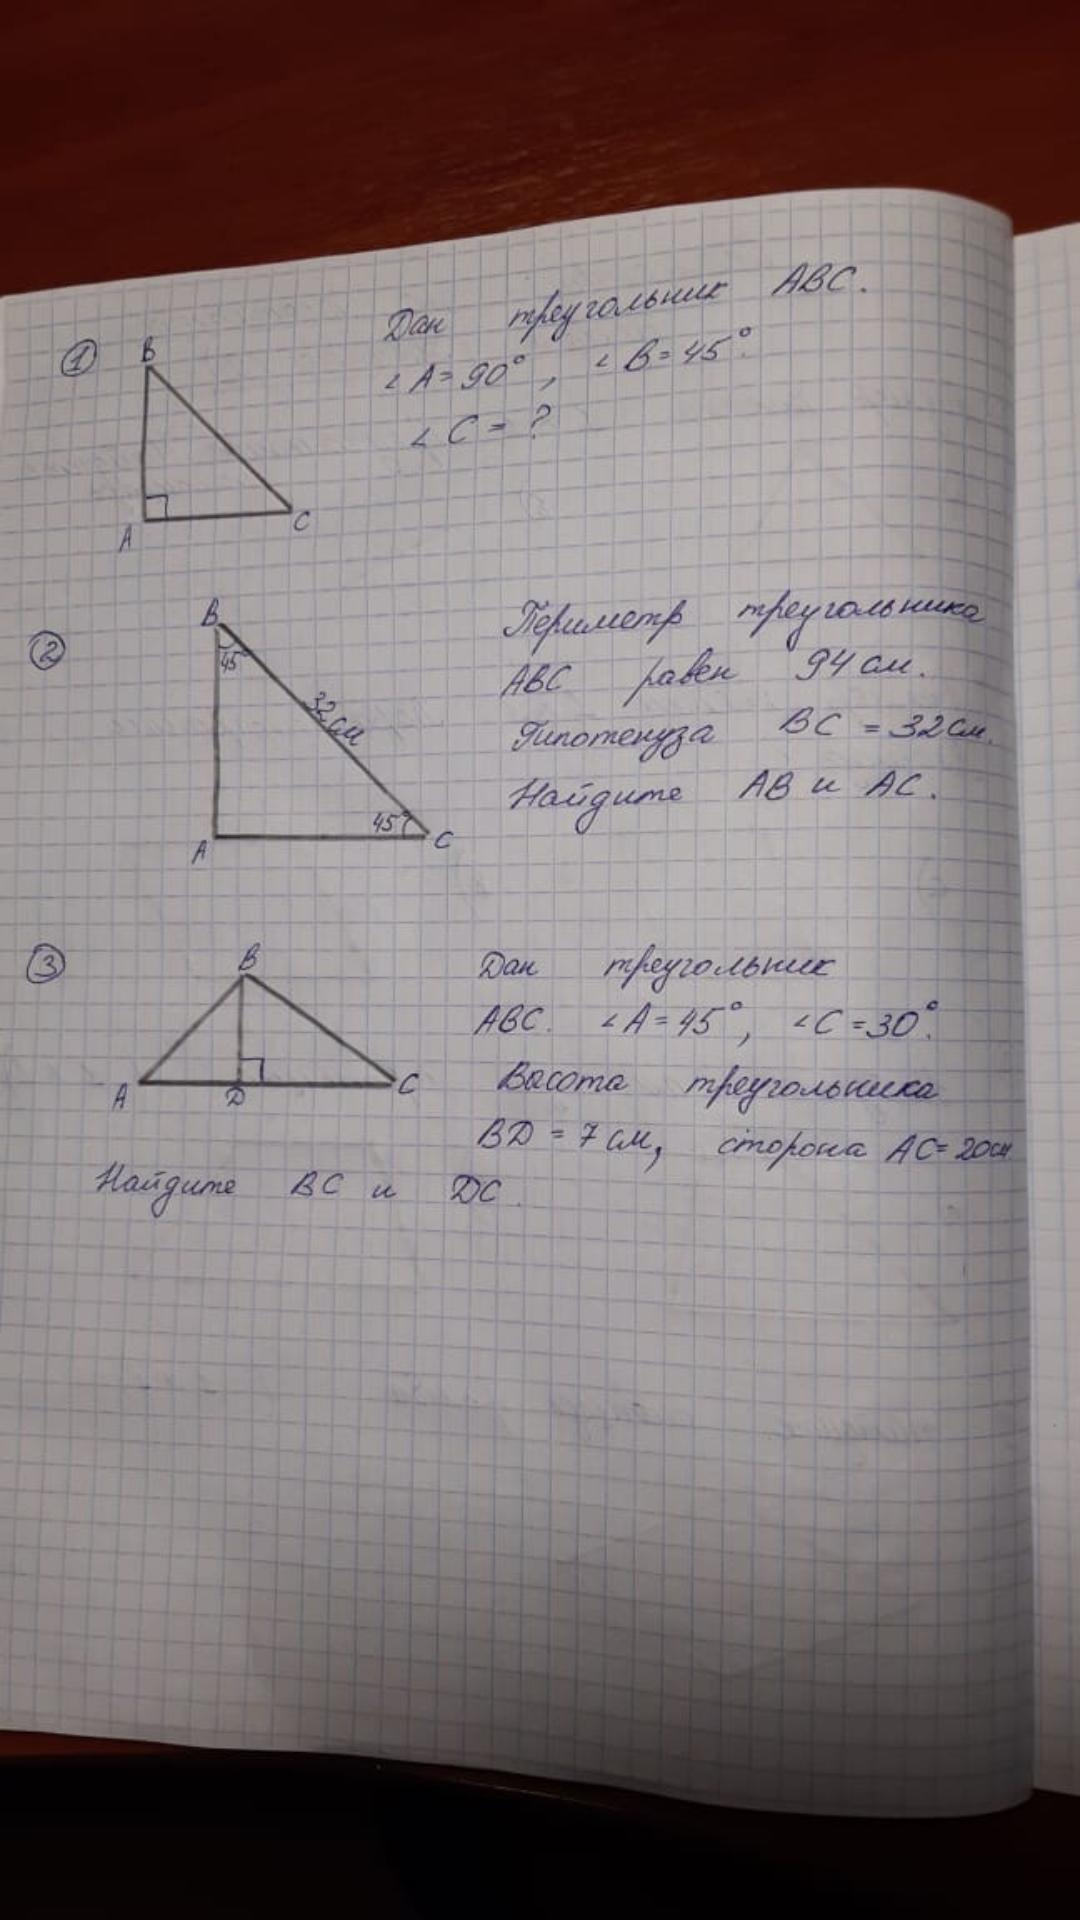 ① B
Дан треугольник ABC.
∠A=90°, ∠B=45°.
∠C=?
A
C
② B
45°
32см
45°
A
C
Периметр треугольника
ABC равен 94 см.
Гипотенуза BC = 32см.
Найдите AB и AC.
③ B
A
D
C
Дан треугольник
ABC. ∠A=45°, ∠C=30°.
Васота треугольника
BD = 7 см, сторона AC=20см
Найдите BC и DC.